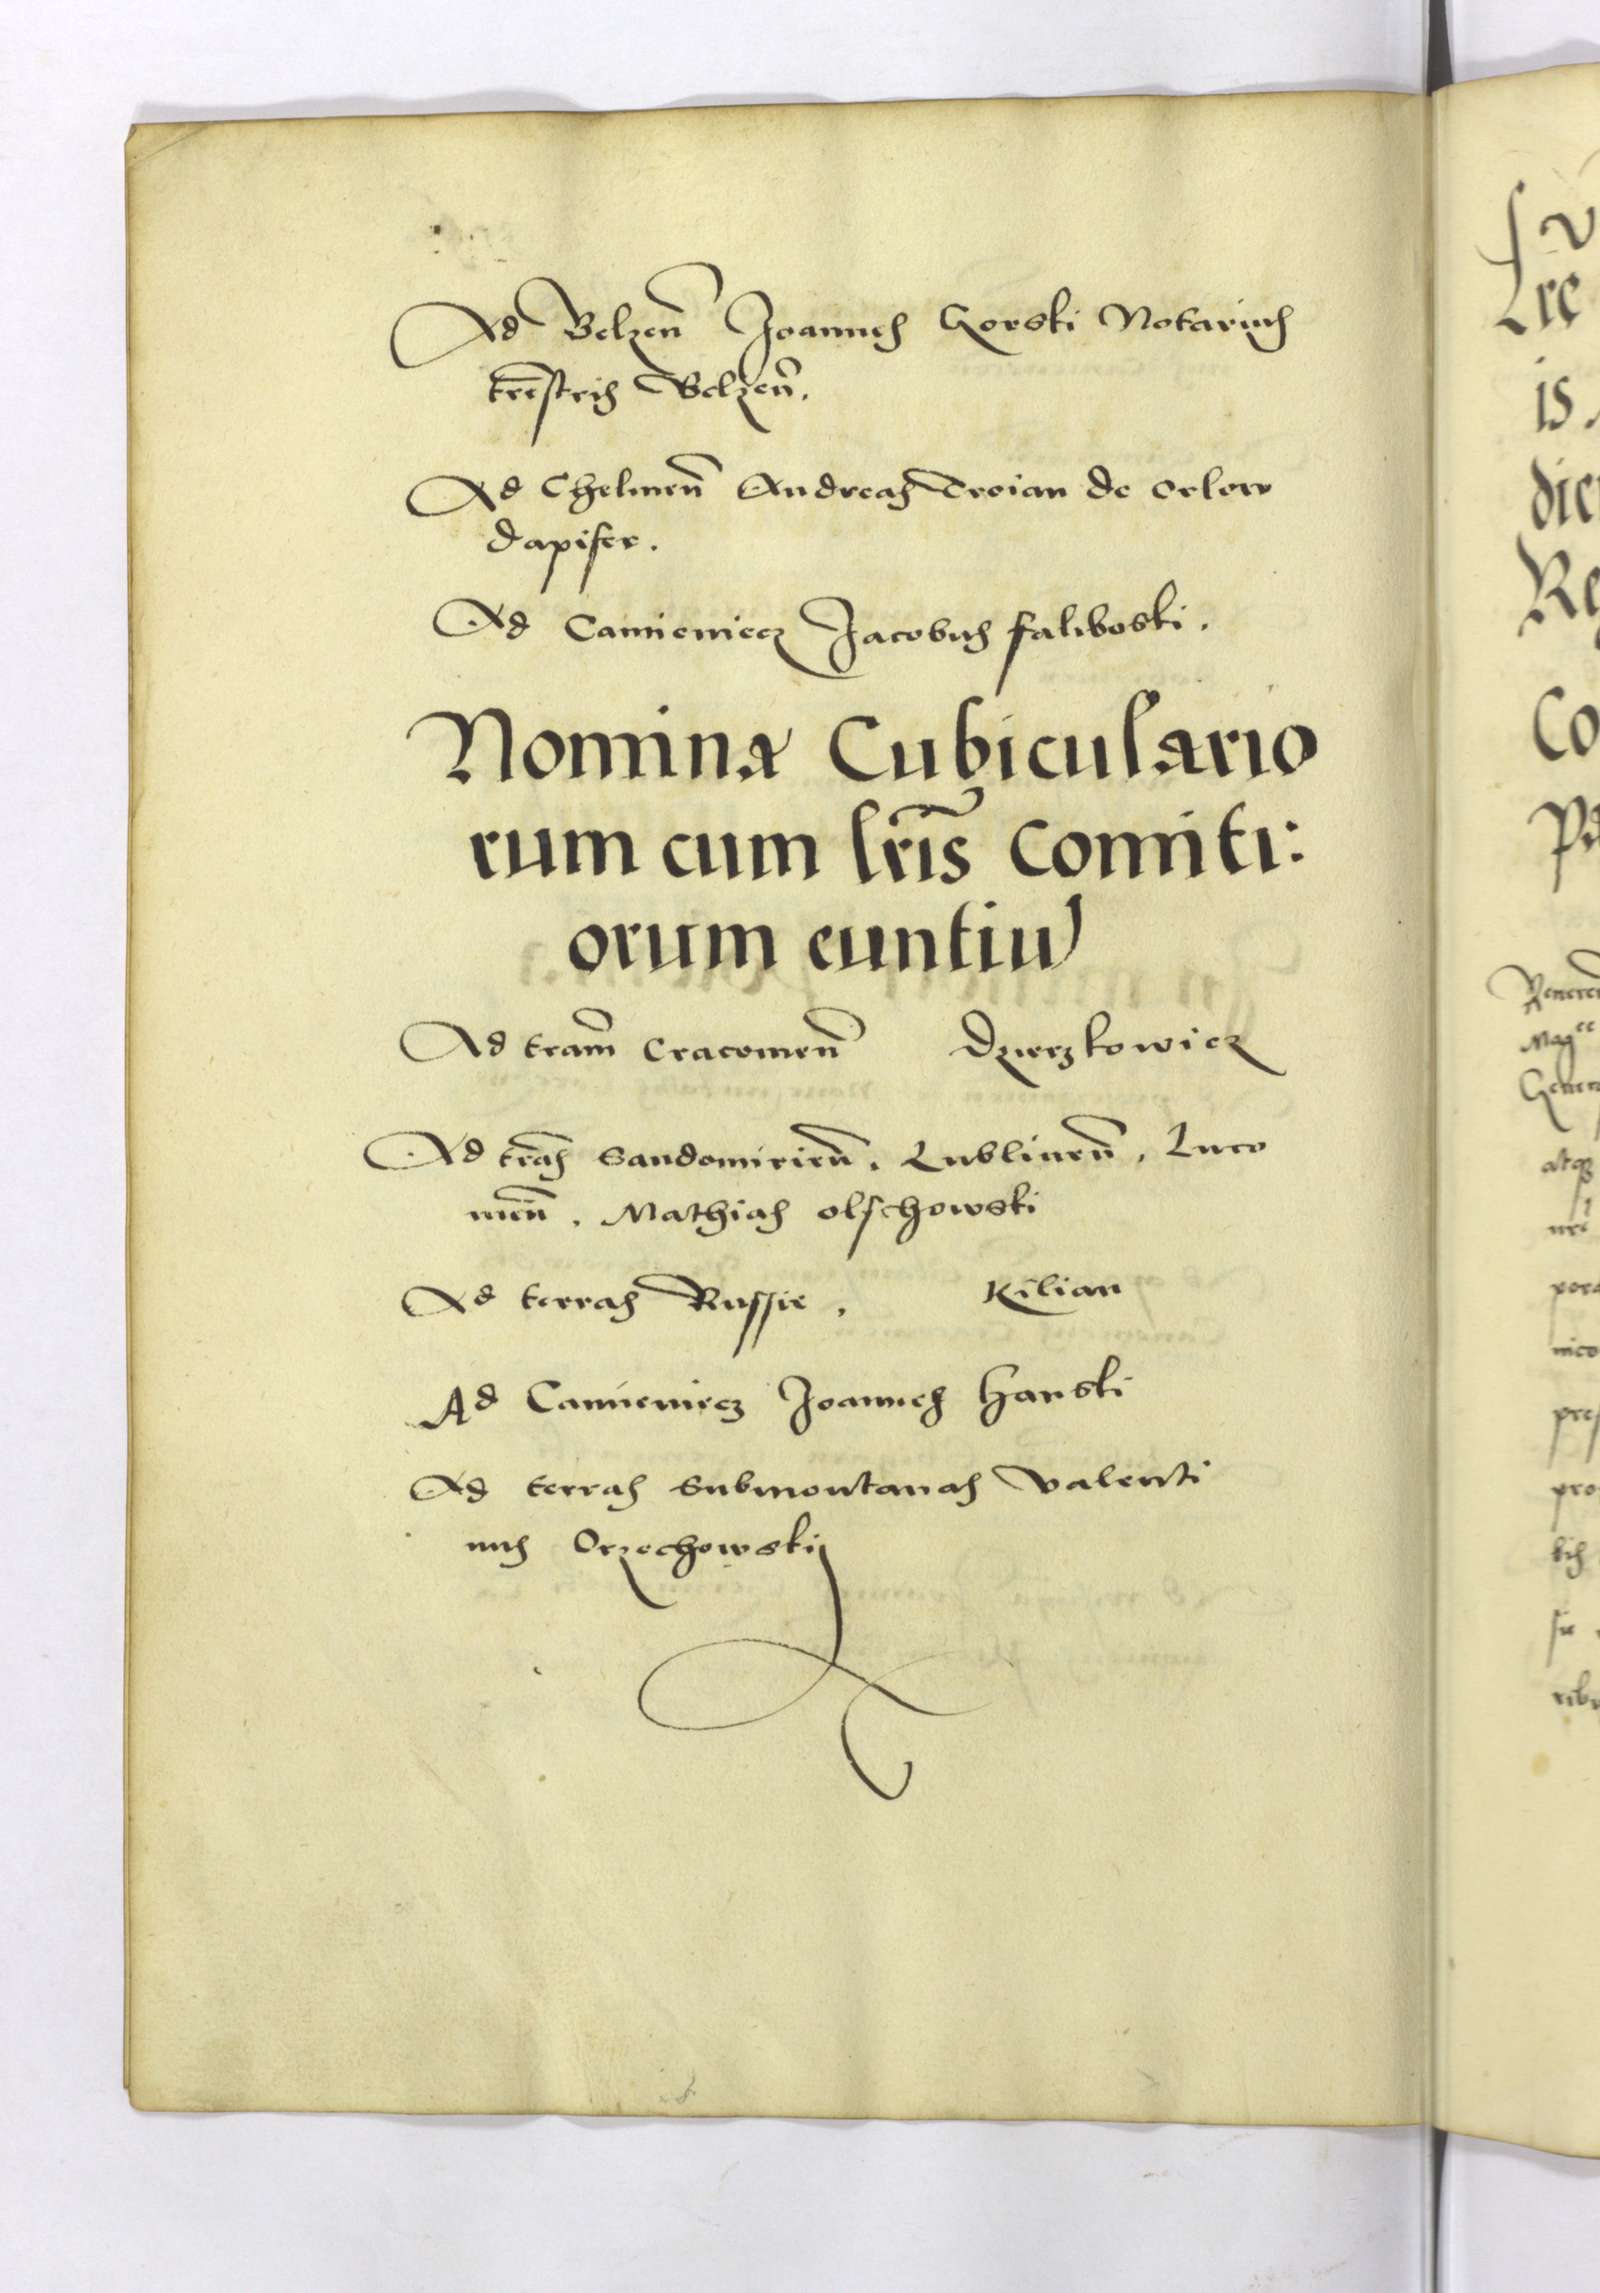 Ad Belzen̄ Joannes Gorski Notarius
trēstris Belzen̄.
Ad Chelmen̄ Andreas Troian de Orlow
dapifer.
Ad Camieniecz Jacobus faliboski.
Nomina Cubiculario
rum cum lr̄is Comiti:
orum euntiu
Ad tram̄ Cracomen̄ Dzierzkowicz
Ad tr̄as Sandomirien̄. Lublinen̄. Luco
mien̄. Mathias olschowski
Ad terras Russie. Kilian
Ad Camieniecz Joannes Hanski
Ad terras Submontanas Valenti
nus Orzechowskij